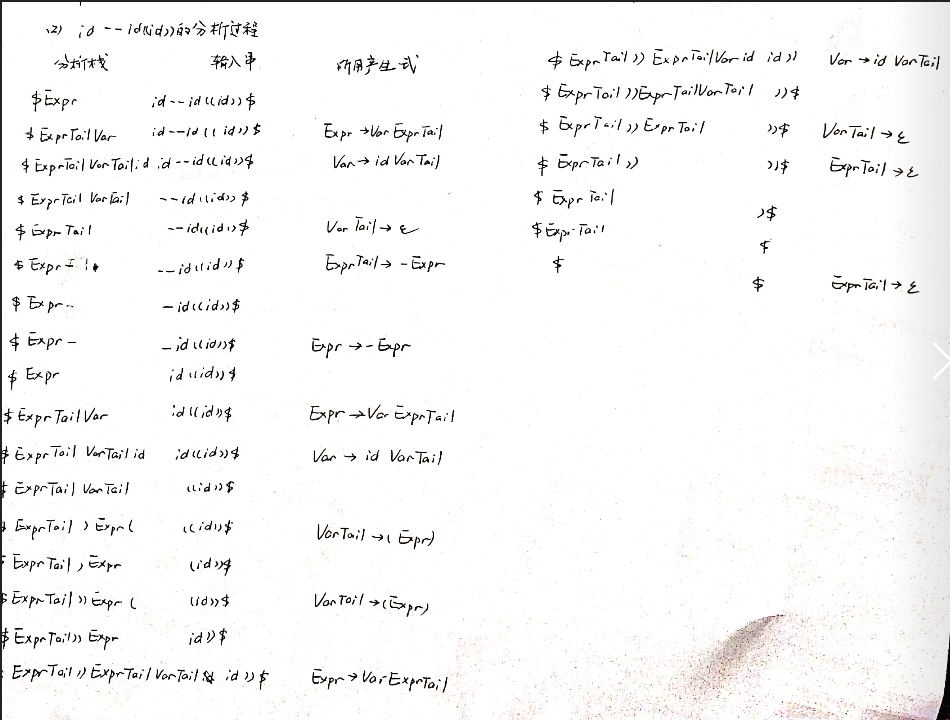 (2) id--id((id))的分析过程
分析栈 输入串 所用产生式
$Expr id--id((id))$
$ExprTailVar id--id((id))$ Expr→VarExprTail
$ExprTail VarTail id id--id((id))$ Var→id VarTail
$ExprTail VarTail --id((id))$
$ExprTail --id((id))$ VarTail→ε
$Expr- --id((id))$ ExprTail→-Expr
$Expr- -id((id))$
$Expr- -id((id))$ Expr→-Expr
$Expr id((id))$
$ExprTailVar id((id))$ Expr→VarExprTail
$ExprTail VarTail id id((id))$ Var→id VarTail
$ExprTail VarTail ((id))$
ExprTail)Expr( ((id))$ VarTail→(Expr)
ExprTail)Expr (id))$
$ExprTail))Expr( (id))$ VarTail→(Expr)
$ExprTail))Expr id))$
ExprTail))ExprTail VarTail id))$ Expr→VarExprTail
$ExprTail))ExprTailVar id id)) Var→id VarTail
$ExprTail))ExprTailVarTail ))$
$ExprTail))ExprTail ))$ VarTail→ε
$ExprTail)) ))$ ExprTail→ε
$ExprTail
)$
$ExprTail
$
$
$ ExprTail→ε